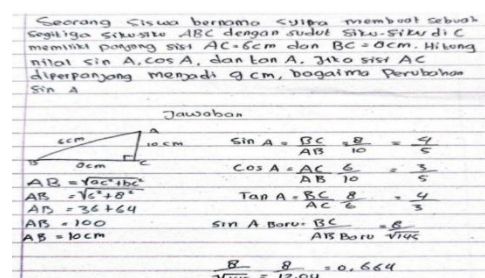 Seorang Siswa bernama Syipa membuat sebuah
Segitiga Siku-siku ABC dengan sudut Siku-Siku di C
memiliki panjang sisi AC=6cm dan BC=8cm. Hitung
nilai sin A, cos A, dan tan A. Jika sisi AC
diperpanjang menjadi 9 cm, bagaima Perubahan
Sin A
Jawaban
6cm
A
10 cm
B
8cm
C
AB = √ac²+bc²
AB = √6²+8²
AB = 36+64
AB = 100
AB = 10cm
Sin A = BC/AB = 8/10 = 4/5
Cos A = AC/AB 6/10 = 3/5
Tan A = BC/AC 8/6 = 4/3
Sin A Baru = BC/AB Baru = 8/√145
8/√145 = 8/12.04 = 0,664